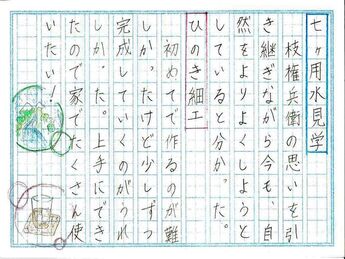 七ヶ用水見学
枝権兵衛の思いを引
き継ぎながら今も、自
然をよりよくしようと
していると分かった。
ひのき細工
初めてで作るのが難
しかったけど少しずつ
完成していくのがうれ
しかった。上手にでき
たので家でたくさん使
いたい!